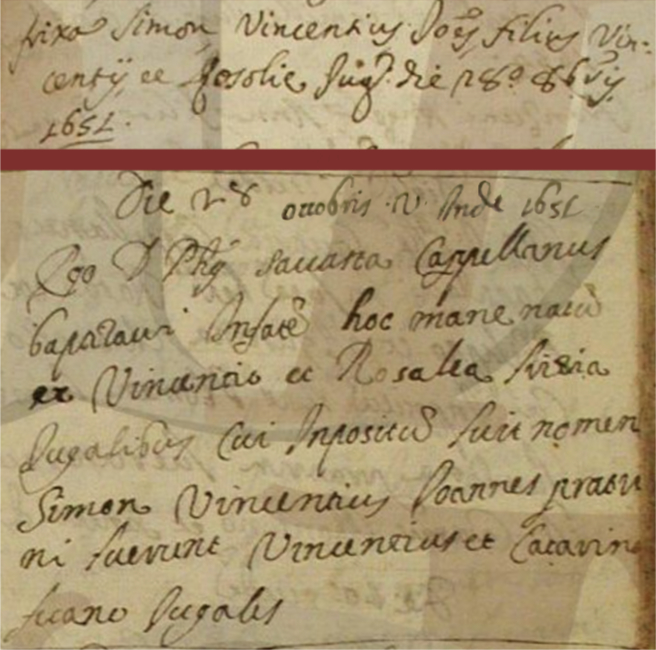 frixa Simon Vincentius Joẽs filius Vin-
centij et Rosolie Jug. die 28º 8bris
1651.
Die 28 ottobris V Inde 1651
Ego D Phs Savasta Cappellanus
baptizavi Infãtẽ hoc mane natũ
ex Vincentio et Rosalea frixia
Jugalibus Cui Inpositũ fuit nomen
Simon Vincentius Joannes patri
ni fuerunt Vincentius et Catarin
ficano Jugalis